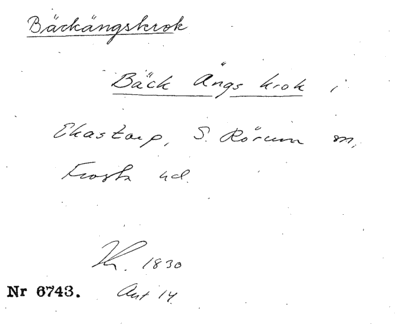 Bäckängskrok
Bäck Ängs krok i
Ekastorp, S. Rörum sn,
Frosta hd.
Kr. 1830
Akt 14.
Nr 6743.